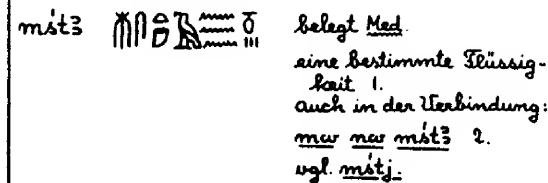 mśtꜣ belegt Med.
eine bestimmte Flüssig-
keit 1.
auch in der Verbindung:
mw nw mśtꜣ 2.
vgl. mśtj.